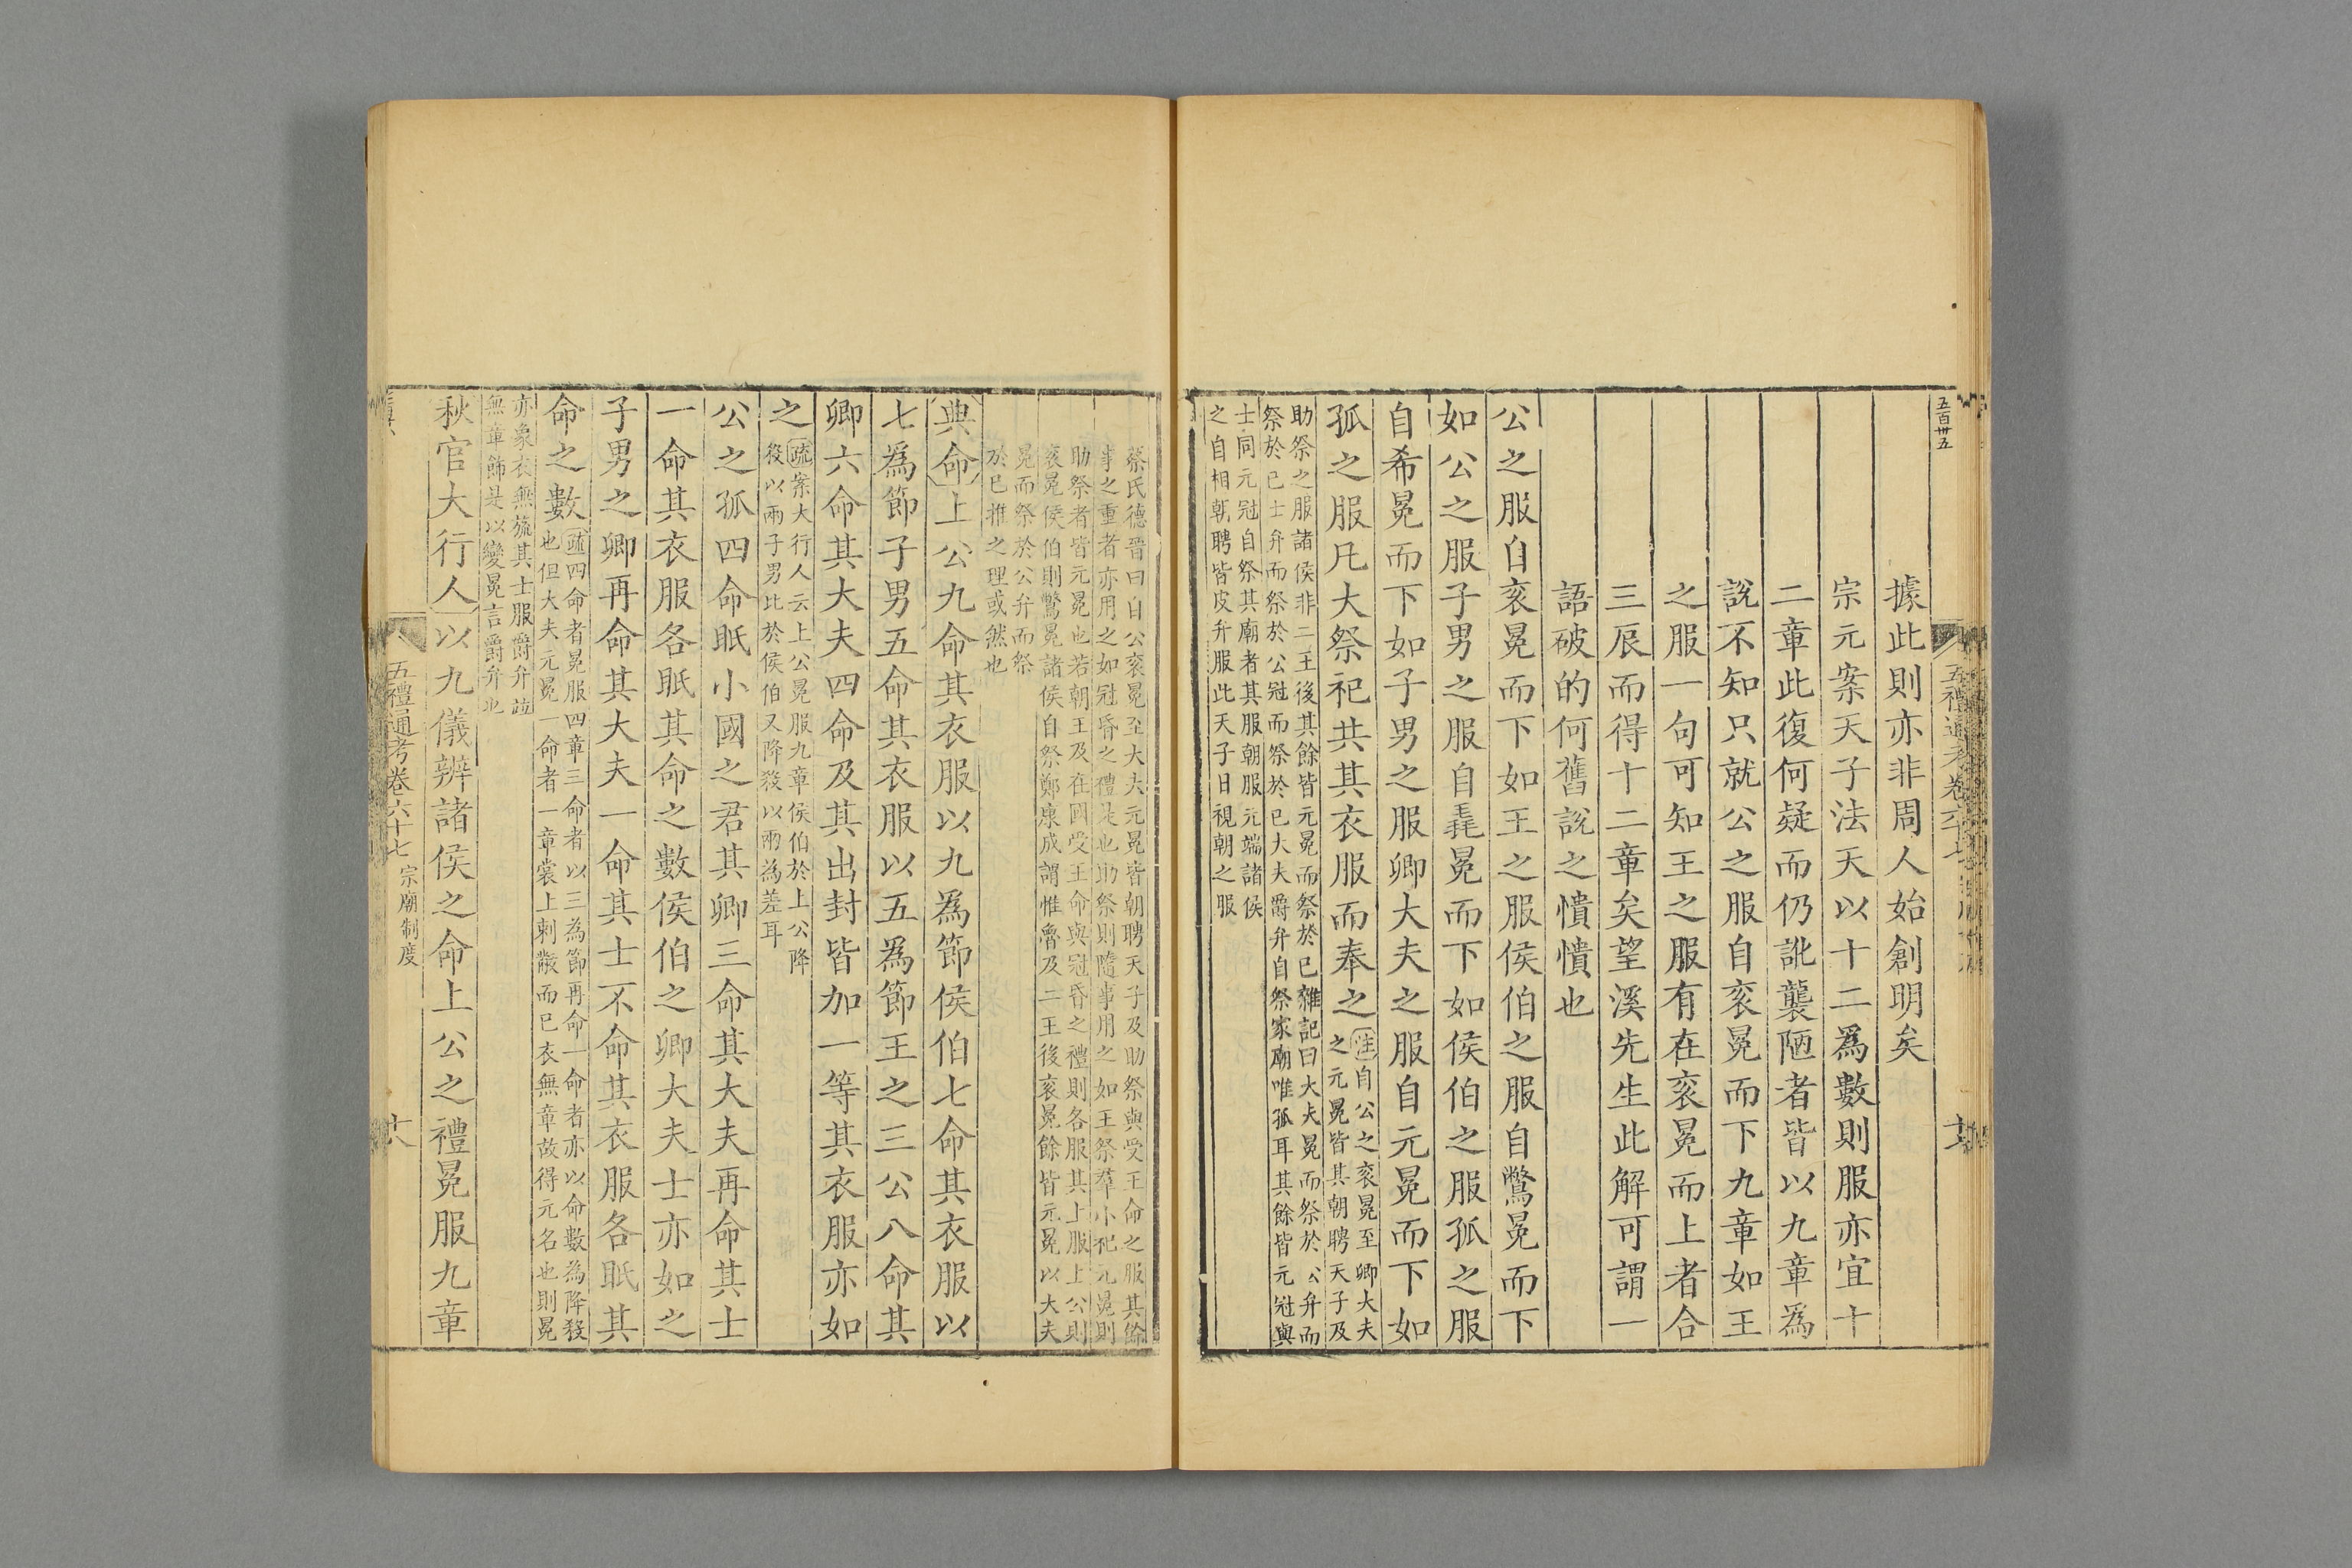 五百卅五
五禮通考卷六十七
據此則亦非周人始創明矣
宗元案天子法天以十二爲數則服亦宜十
二章此復何疑而仍訛襲陋者皆以九章爲
說不知只就公之服自袞冕而下九章如王
之服一句可知王之服有在袞冕而上者合
三辰而得十二章矣望溪先生此解可謂一
語破的何舊說之憒憒也
公之服自袞冕而下如王之服侯伯之服自鷩冕而下
如公之服子男之服自毳冕而下如侯伯之服孤之服
自希冕而下如子男之服卿大夫之服自元冕而下如
孤之服凡大祭祀共其衣服而奉之注自公之袞冕至卿大夫
之元冕皆其朝聘天子及
助祭之服諸侯非二王後其餘皆元冕而祭於已雜記曰大夫冕而祭於公弁而
祭於已士弁而祭於公冠而祭於已大夫爵弁自祭家廟唯孤耳其餘皆元冠與
士同元冠自祭其廟者其服朝服元端諸侯
之自相朝聘皆皮弁服此天子日視朝之服
蔡氏德晉曰自公袞冕至大夫元冕皆朝聘天子及助祭與受王命之服其餘
事之重者亦用之如冠昏之禮是也助祭則隨事用之如王祭羣小祀元冕則
助祭者皆元冕也若朝王及在國受王命與冠昏之禮則各服其上服上公則
袞冕侯伯則鷩冕諸侯自祭鄭康成謂惟魯及二王後袞冕餘皆元冕以大夫
冕而祭於公弁而祭
於已推之理或然也
典命上公九命其衣服以九爲節侯伯七命其衣服以
七爲節子男五命其衣服以五爲節王之三公八命其
卿六命其大夫四命及其出封皆加一等其衣服亦如
之疏案大行人云上公冕服九章侯伯於上公降
殺以兩子男比於侯伯又降殺以兩為差耳
公之孤四命眂小國之君其卿三命其大夫再命其士
一命其衣服各眂其命之數侯伯之卿大夫士亦如之
子男之卿再命其大夫一命其士不命其衣服各眂其
命之數疏四命者冕服四章三命者以三為節再命一命者亦以命數為降殺
也但大夫元冕一命者一章裳上刺黻而已衣無章故得元名也則冕
亦象衣無旒其士服爵弁並
無章飾是以變冕言爵弁也
秋官大行人以九儀辨諸侯之命上公之禮冕服九章
五禮通考卷六十七 宗廟制度
六